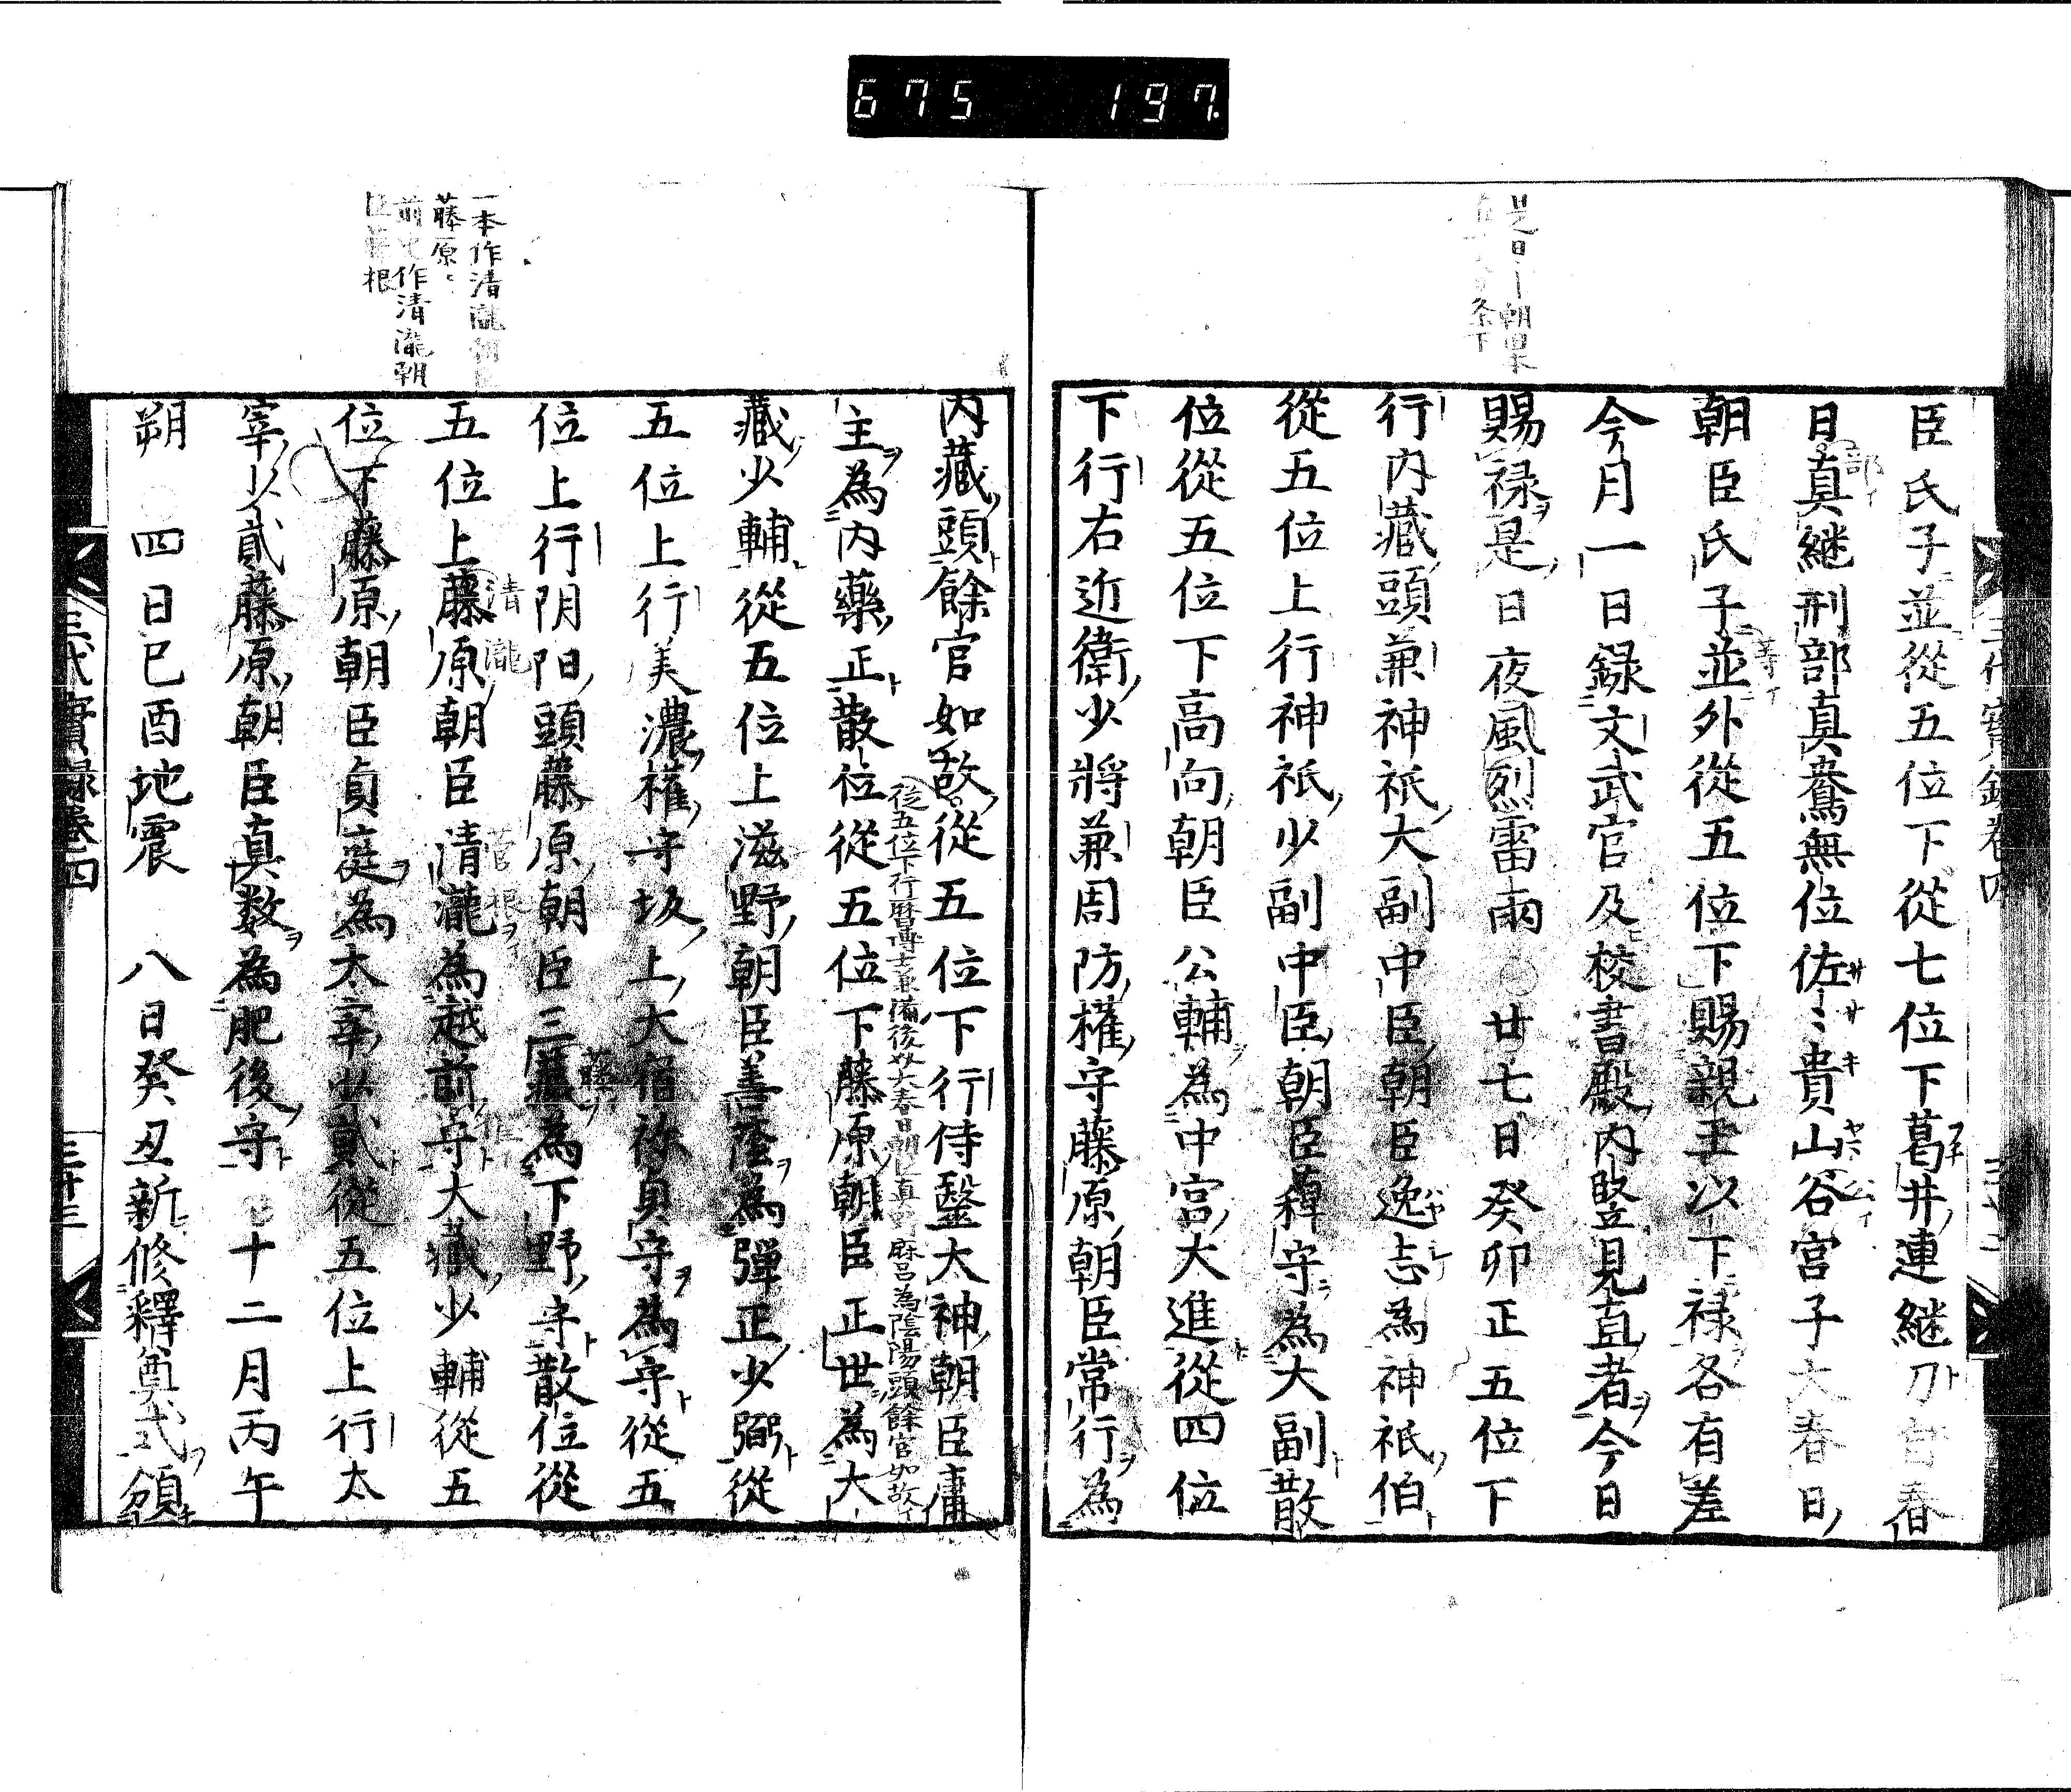 675 197.
臣氏子並從五位下從七位下葛井連継刀自春
日真継刑部真鴦無位佐〻貴山谷宮子大春日
朝臣氏子並外從五位下賜親王以下禄各有差
今月一日録文武官及校書殿内竪見直者今日
賜禄是日夜風烈雷雨 廿七日癸卯正五位下
行内藏頭兼神祇大副中臣朝臣逸志為神祇伯
從五位上行神祇少副中臣朝臣薭守為大副散
位從五位下高向朝臣公輔為中宮大進從四位
下行右近衛少將兼周防權守藤原朝臣常行為
内藏頭餘官如故從五位下行侍毉大神朝臣庸
從五位下行曆博士兼備後介大春日朝臣真野麻呂為陰陽頭餘官如故イ
主為内藥正散位從五位下藤原朝臣正世為大
藏少輔從五位上滋野朝臣善蔭為彈正少弼從
五位上行美濃權守坂上大宿祢貞守為守從五
位上行阴阳頭藤原朝臣三藏為下野守散位從
五位上藤原朝臣清瀧為越前守大藏少輔從五
位下藤原朝臣貞庭為太宰少貳從五位上行太
宰少貳藤原朝臣真数為肥後守 十二月丙午
朔 四日己酉地震 八日癸丑新修釋奠式頒
三代實録卷四 三十三
一本作清瀧朝臣
藤原〻
作清瀧朝
根
清瀧
菅根ヲイ
藤
部イ
等イ
公イ